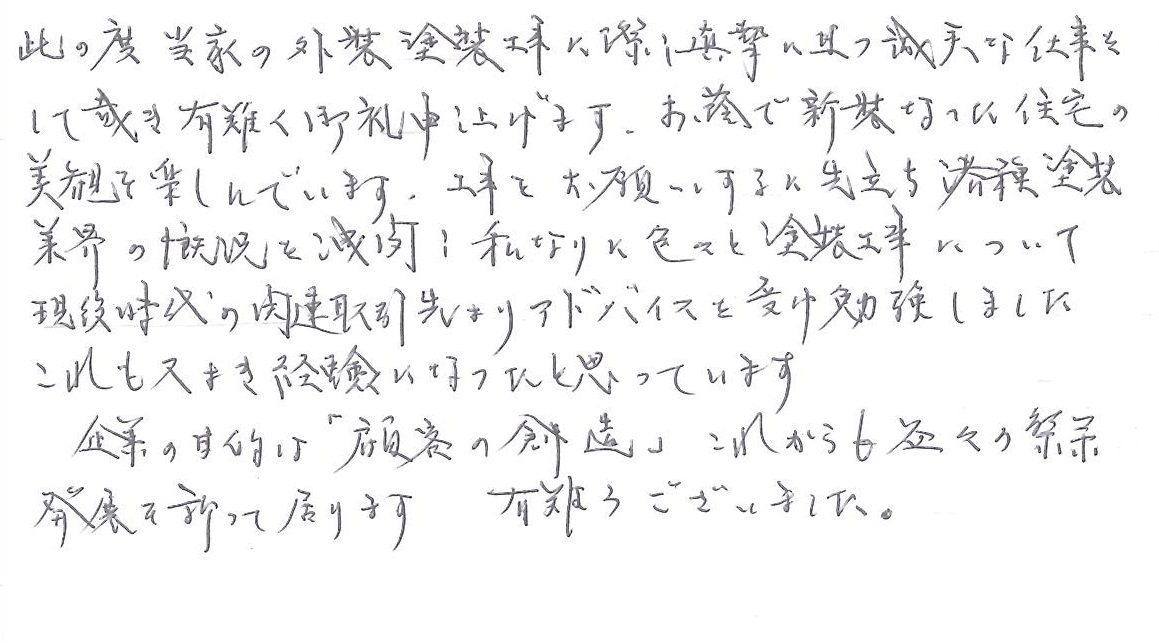 此の度 当家の外装塗装工事に際し真摯に且つ誠実な仕事を
して戴き有難く御礼申し上げます。お蔭で新装なった住宅の
美観を楽しんでいます。工事をお願いするに先立ち 塗装
業界の概況を 私なりに色々と塗装工事について
現役時代の関連取引先よりアドバイスを受け勉強しました
これも又よき経験になったと思っています
企業の目的は「顧客の創造」これからも益々の繁栄
発展を祈って居ります 有難うございました。